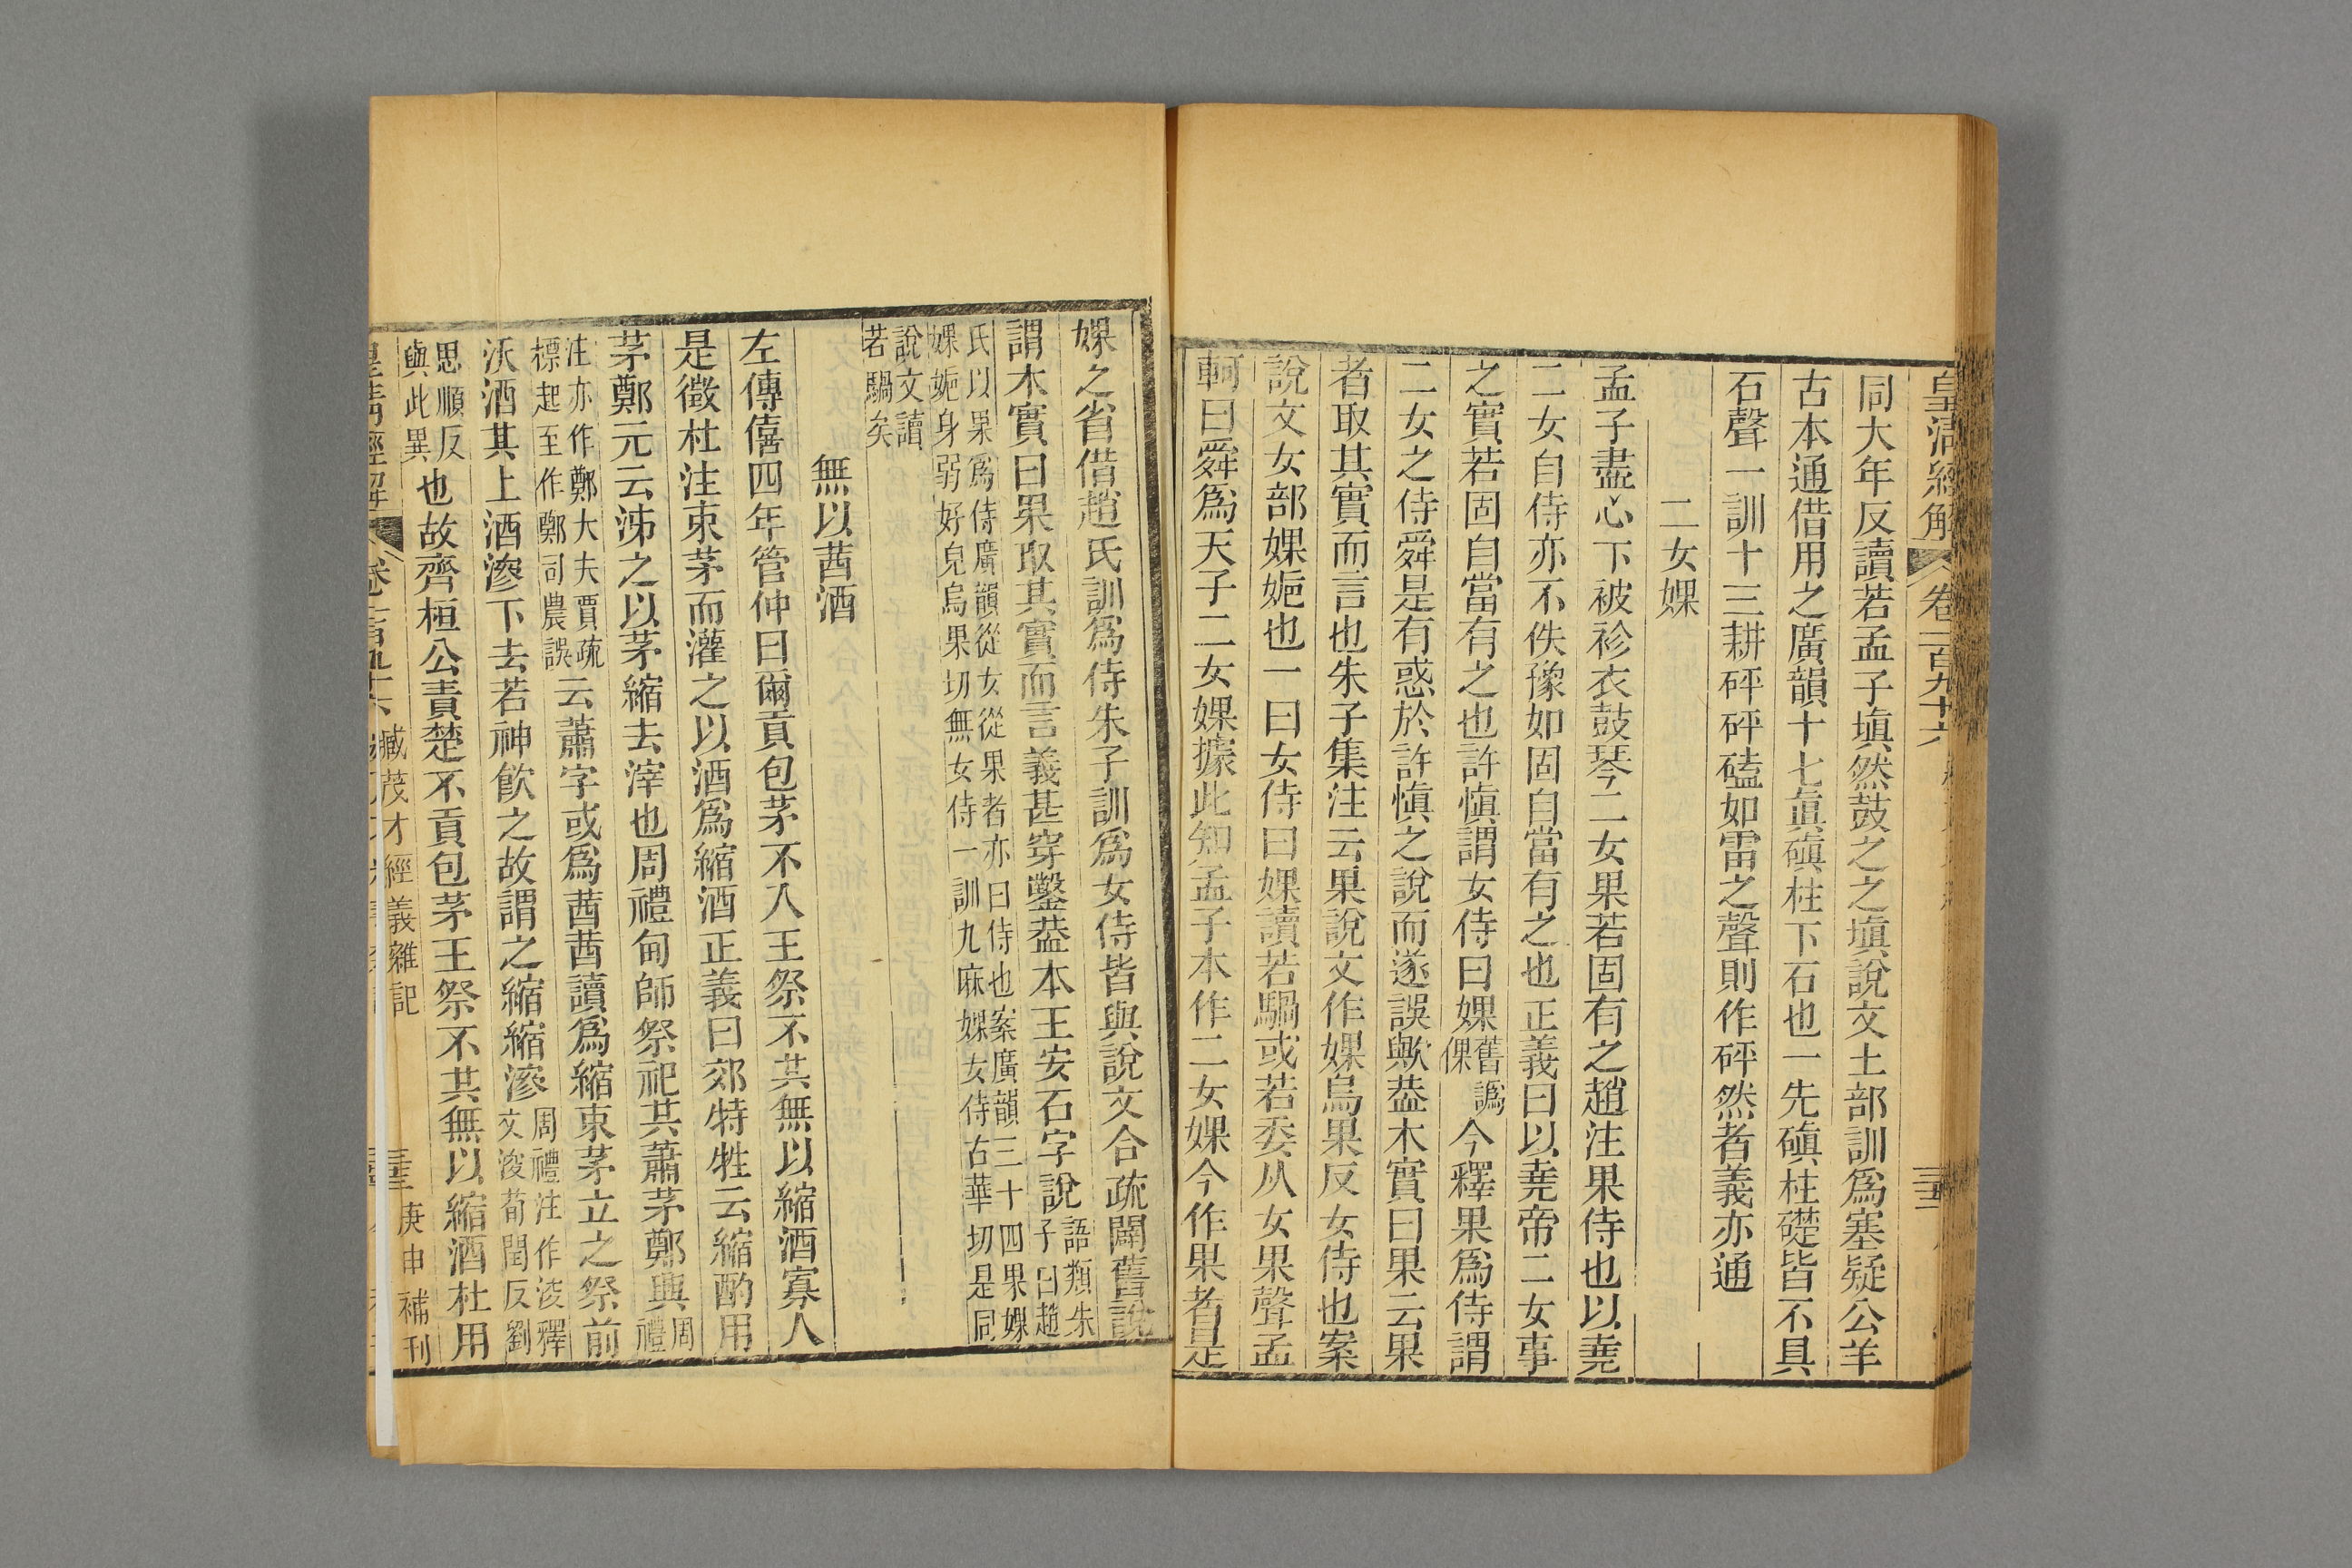 皇清經解 卷二百九十六
同大年反讀若孟子塡然鼓之之塡說文土部訓爲塞疑公羊
古本通借用之廣韻十七眞磌柱下石也一先磌柱礎皆不具
石聲一訓十三耕砰砰磕如雷之聲則作砰然者義亦通
二女婐
孟子盡心下被袗衣鼓琴二女果若固有之趙注果侍也以堯
二女自侍亦不佚豫如固自當有之也正義曰以堯帝二女事
之實若固自當有之也許愼謂女侍曰婐舊譌倮今釋果爲侍謂
二女之侍舜是有惑於許愼之說而遂誤歟葢木實曰果云果
者取其實而言也朱子集注云果說文作婐烏果反女侍也案
說文女部婐婐妮也一曰女侍曰婐讀若騧或若委从女果聲孟
軻曰舜爲天子二女婐據此知孟子本作二女婐今作果者是
婐之省借趙氏訓爲侍朱子訓爲女侍皆與說文合疏闢舊說
謂木實曰果取其實而言義甚穿鑿葢本王安石字說語類朱子曰趙
氏以果爲侍廣韻從女從果者亦曰侍也案廣韻三十四果婐
婐妮身弱好皃烏果切無女侍一訓九麻婐女侍古華切是同
說文讀
若騧矣
無以茜酒
左傳僖四年管仲曰爾貢包茅不入王祭不共無以縮酒寡人
是徵杜注束茅而灌之以酒爲縮酒正義曰郊特牲云縮酌用
茅鄭元云泲之以茅縮去滓也周禮甸師祭祀共蕭茅鄭興周禮
注亦作鄭大夫賈疏標起至作鄭司農誤云蕭字或爲茜茜讀爲縮束茅立之祭前
沃酒其上酒滲下去若神飮之故謂之縮縮滲周禮注作浚釋文浚荀閏反劉
思順反與此異也故齊桓公責楚不貢包茅王祭不共無以縮酒杜用
皇淸經解 臧茂才經義雜記 庚申補刊